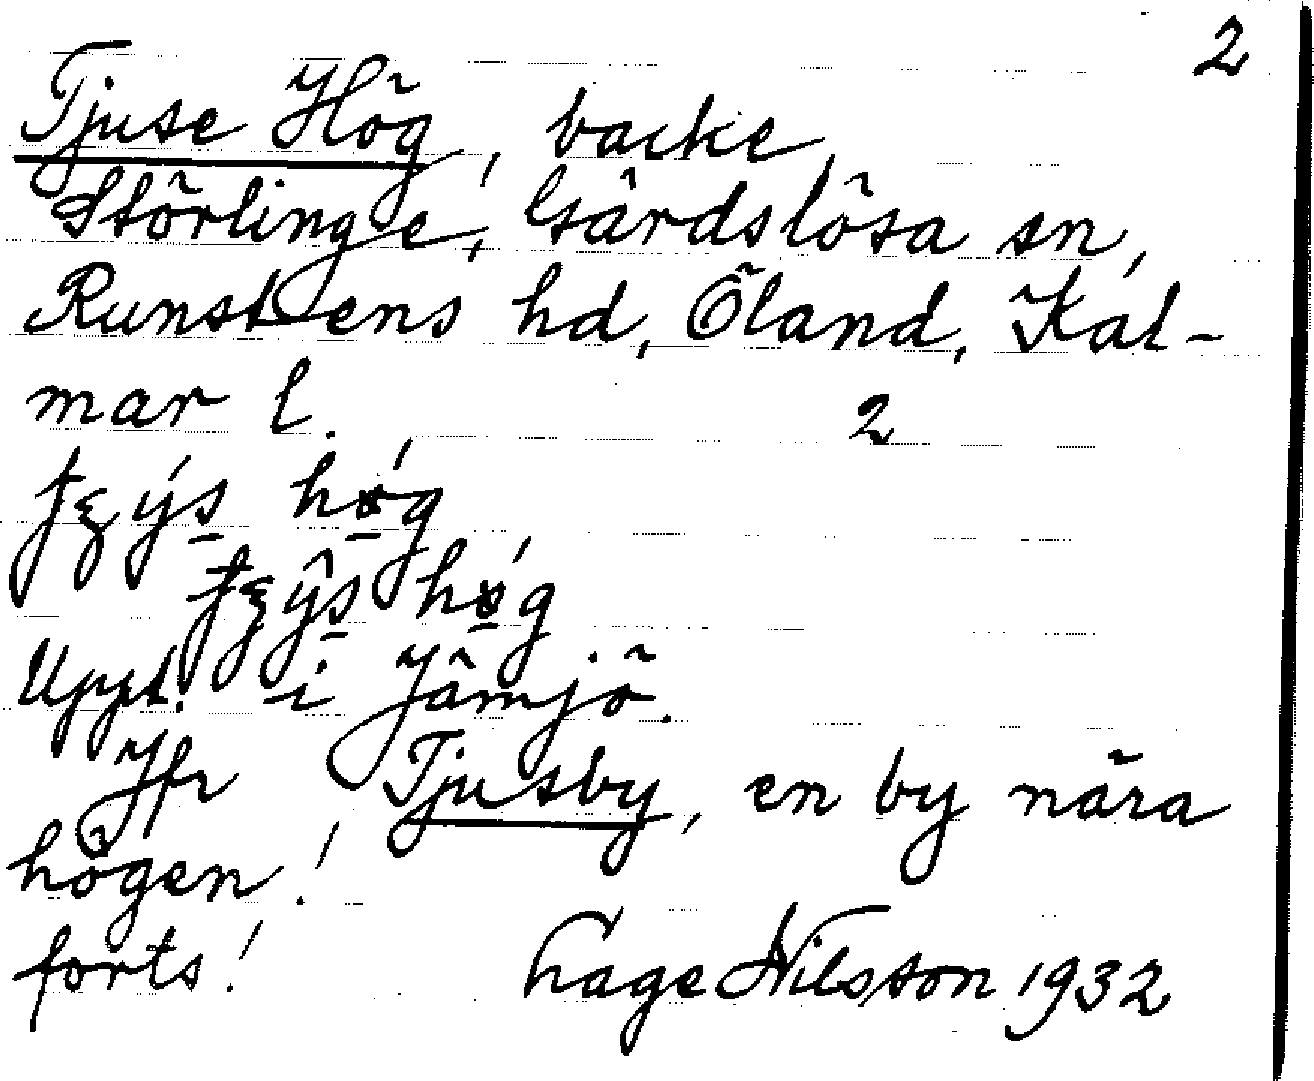 2
Tjuse Hög, backe,
Störlinge, Gärdslösa sn,
Runstens hd, Öland, Kal-
mar l. 2
Uppt. i Jämjö.
Jfr Tjusby, en by nära
högen!
forts! Hage Nilsson 1932